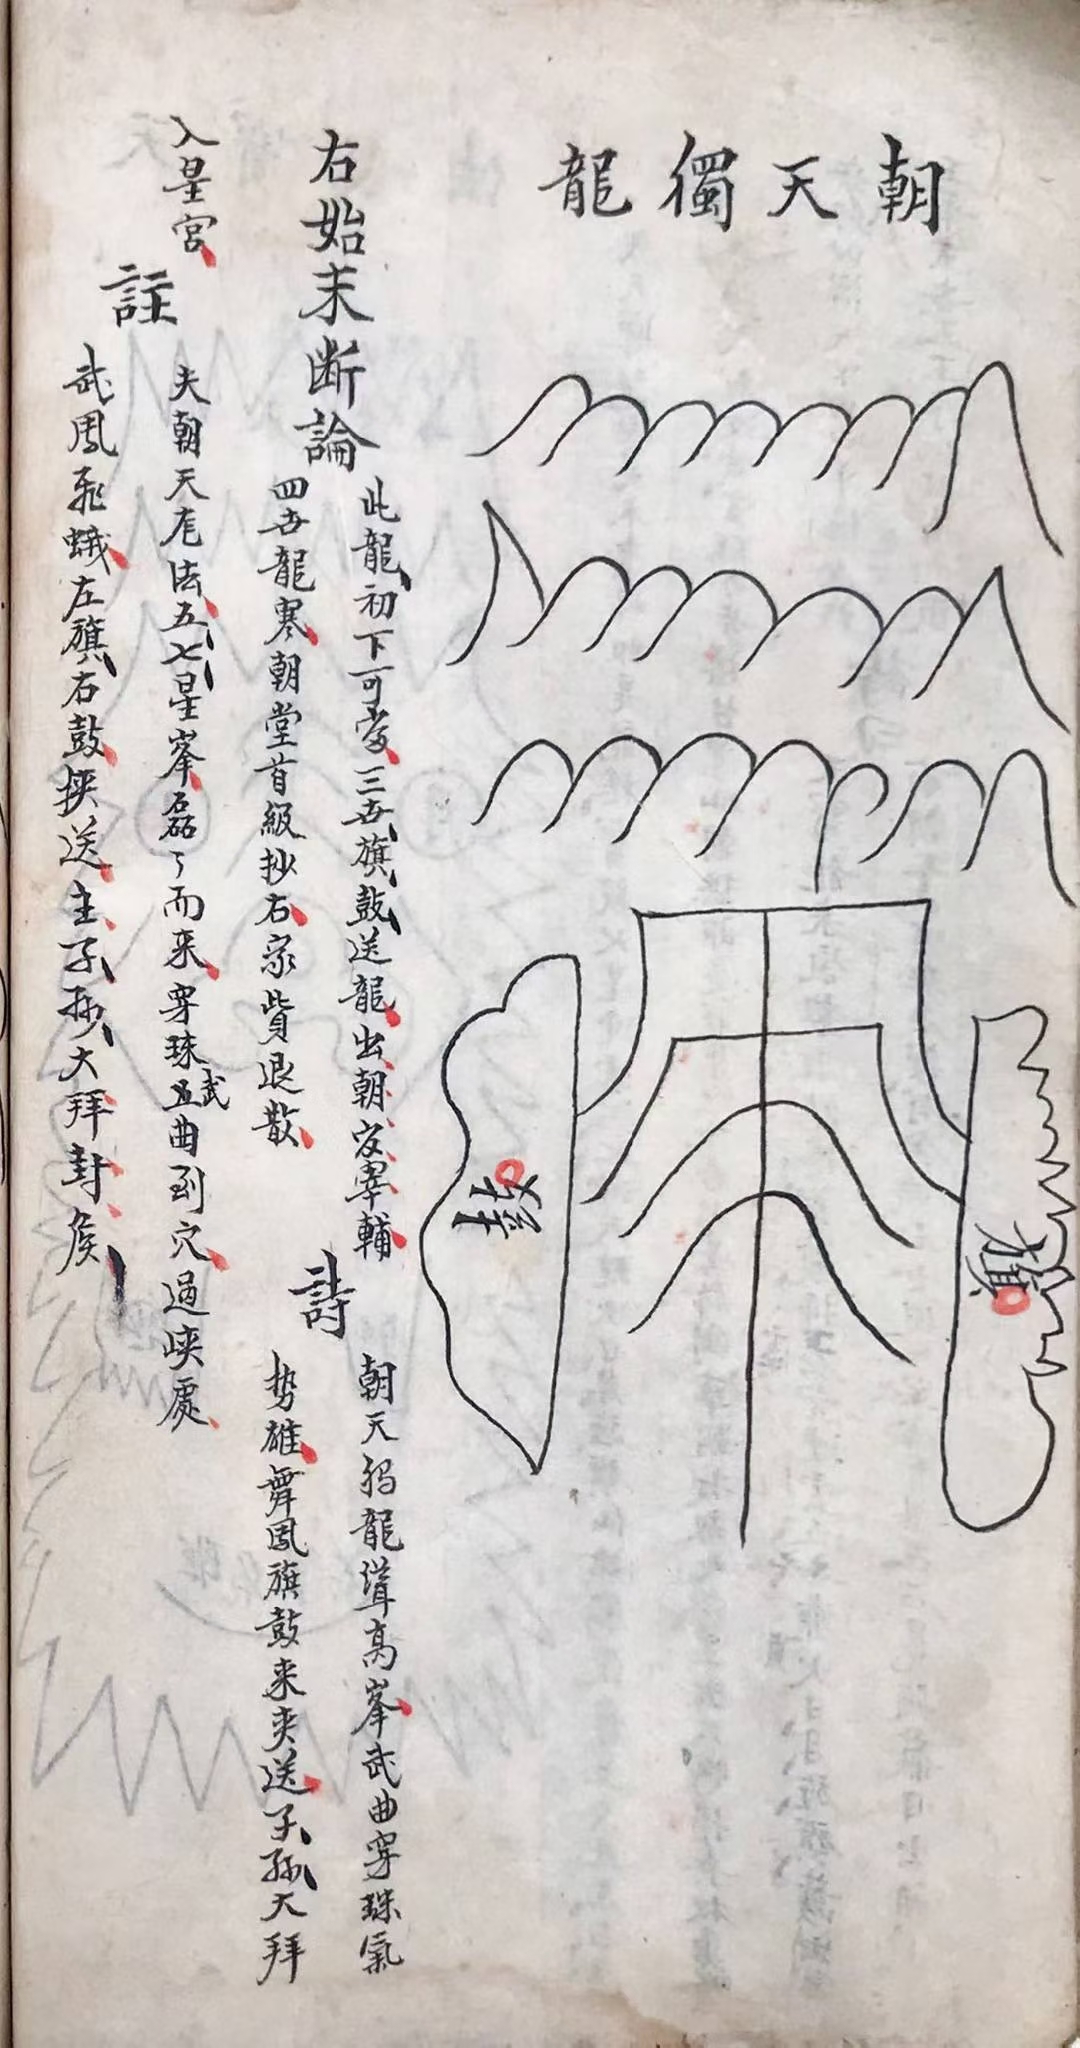 朝天獨龍
鼓
旗
右始末断論
此龍初下可當三世旗鼓送龍出朝宰輔
四世龍寒朝堂首級抄右家貲退散
詩
朝天獨龍聳高峯武曲穿珠氣
势雄舞鳳旗鼓来夾送子孫大拜
入星宮
註
夫朝天龙法五七星峯磊々而来穿珠五武曲到穴過峡處
武鳳飛蛾左旗右鼓挟送主子孫大拜封侯